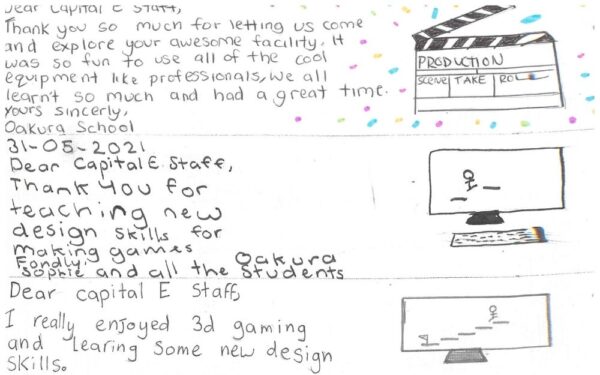 Dear Capital E Staff,
Thank you so much for letting us come
and explore your awesome facility. It
was so fun to use all of the cool
equipment like professionals, We all
learnt so much and had a great time.
Yours sincerly,
Oakura School
PRODUCTION
SCENE TAKE ROL
31-05-2021
Dear Capital E Staff,
Thank You for
teaching new
design skills for
making games
Fondly,
Sophie and all the Oakura Students
Dear capital E Staff,
I really enjoyed 3d gaming
and learing Some new design
Skills.